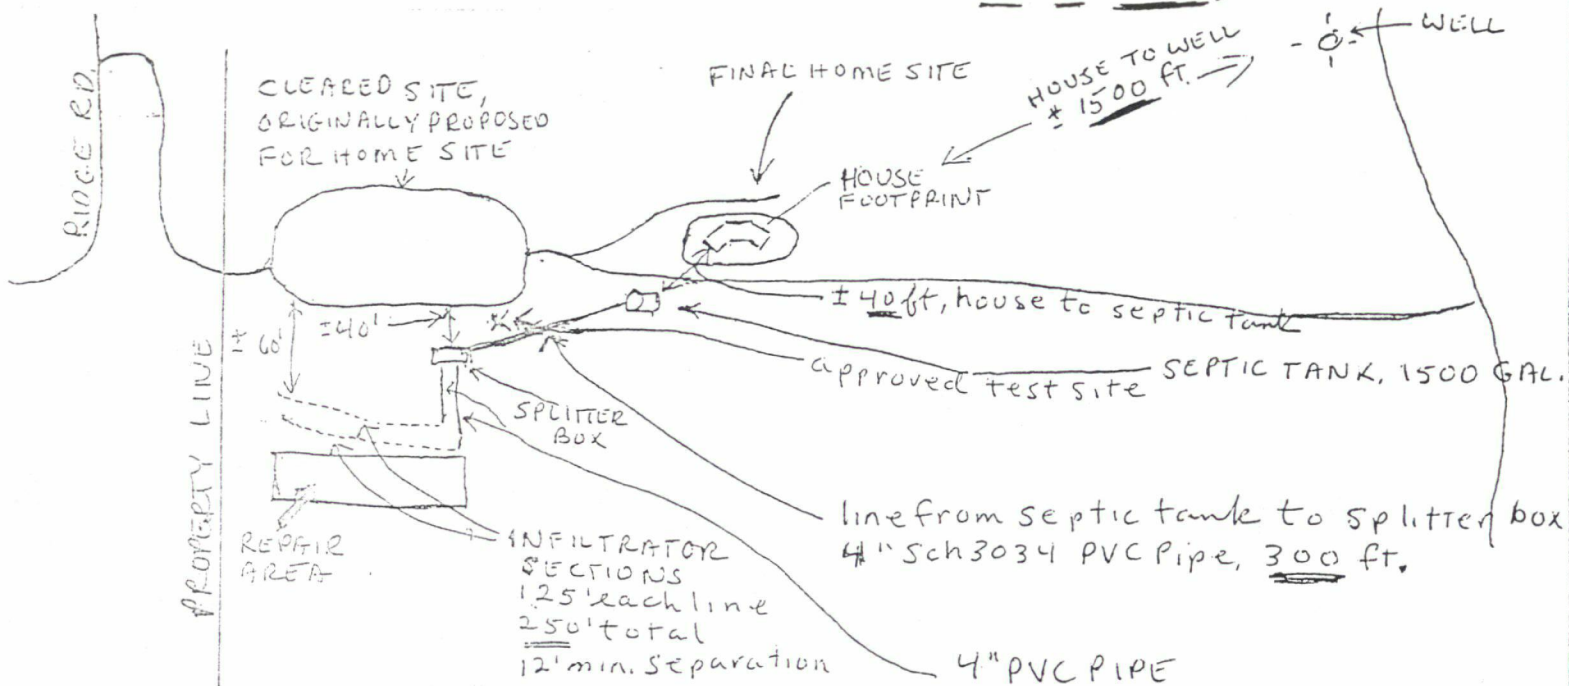 RIDGE RD.
PROPERTY LINE
CLEARED SITE,
ORIGINALLY PROPOSED
FOR HOME SITE
FINAL HOME SITE
HOUSE TO WELL
± 1500 ft.
WELL
HOUSE
FOOTPRINT
± 40 ft, house to septic tank
± 60'
±40'
approved test site
SEPTIC TANK, 1500 GAL.
SPLITTER
BOX
line from septic tank to splitter box
4" Sch 3034 PVC Pipe, 300 ft.
REPAIR
AREA
INFILTRATOR
SECTIONS
125' each line
250' total
12' min. separation
4" PVC PIPE